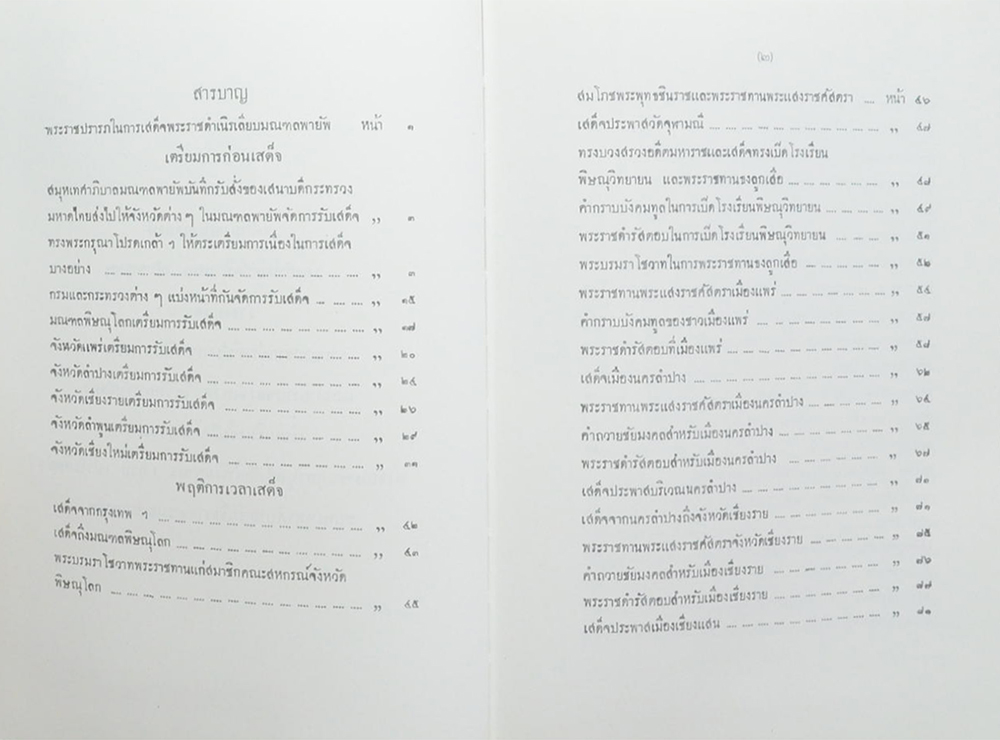 สารบาญ
พระราชปรารภในการเสด็จพระราชดำเนิรเลียบมณฑลพายัพ หน้า ๑
เตรียมการก่อนเสด็จ
สมุหเทศาภิบาลมณฑลพายัพบันทึกรับสั่งของเสนาบดีกระทรวง
มหาดไทยส่งไปให้จังหวัดต่าง ๆ ในมณฑลพายัพจัดการรับเสด็จ ,, ๓
ทรงพระกรุณาโปรดเกล้า ฯ ให้ตระเตรียมการเนื่องในการเสด็จ
บางอย่าง .... ,, ๓
กรมและกระทรวงต่าง ๆ แบ่งหน้าที่กันจัดการรับเสด็จ .... ,, ๑๕
มณฑลพิษณุโลกเตรียมการรับเสด็จ .... ,, ๑๗
จังหวัดแพร่เตรียมการรับเสด็จ .... ,, ๒๐
จังหวัดลำปางเตรียมการรับเสด็จ .... ,, ๒๔
จังหวัดเชียงรายเตรียมการรับเสด็จ .... ,, ๒๖
จังหวัดลำพูนเตรียมการรับเสด็จ .... ,, ๒๙
จังหวัดเชียงใหม่เตรียมการรับเสด็จ .... ,, ๓๑
พฤติการเวลาเสด็จ
เสด็จจากกรุงเทพ ฯ .... ,, ๔๒
เสด็จถึงมณฑลพิษณุโลก .... ,, ๔๓
พระบรมราโชวาทพระราชทานแก่สมาชิกคณะสหกรณ์จังหวัด
พิษณุโลก .... ,, ๔๕
(๒)
สมโภชพระพุทธชินราชและพระราชทานพระแสงราชศัสตรา .... หน้า ๔๖
เสด็จประพาสวัดจุฬามณี .... ,, ๔๗
ทรงบวงสรวงอดีตมหาราชและเสด็จทรงเปิดโรงเรียน
พิษณุวิทยายน และพระราชทานธงลูกเสือ .... ,, ๔๘
คำกราบบังคมทูลในการเปิดโรงเรียนพิษณุวิทยายน .... ,, ๔๙
พระราชดำรัสตอบในการเปิดโรงเรียนพิษณุวิทยายน .... ,, ๕๑
พระบรมราโชวาทในการพระราชทานธงลูกเสือ .... ,, ๕๒
พระราชทานพระแสงราชศัสตราเมืองแพร่ .... ,, ๕๔
คำกราบบังคมทูลของชาวเมืองแพร่ .... ,, ๕๗
พระราชดำรัสตอบที่เมืองแพร่ .... ,, ๕๘
เสด็จเมืองนครลำปาง .... ,, ๖๒
พระราชทานพระแสงราชศัสตราเมืองนครลำปาง .... ,, ๖๔
คำถวายชัยมงคลสำหรับเมืองนครลำปาง .... ,, ๖๕
พระราชดำรัสตอบสำหรับเมืองนครลำปาง .... ,, ๖๗
เสด็จประพาสบริเวณนครลำปาง .... ,, ๗๑
เสด็จจากนครลำปางถึงจังหวัดเชียงราย .... ,, ๗๑
พระราชทานพระแสงราชศัสตราจังหวัดเชียงราย .... ,, ๗๕
คำถวายชัยมงคลสำหรับเมืองเชียงราย .... ,, ๗๖
พระราชดำรัสตอบสำหรับเมืองเชียงราย .... ,, ๗๗
เสด็จประพาสเมืองเชียงแสน .... ,, ๘๑